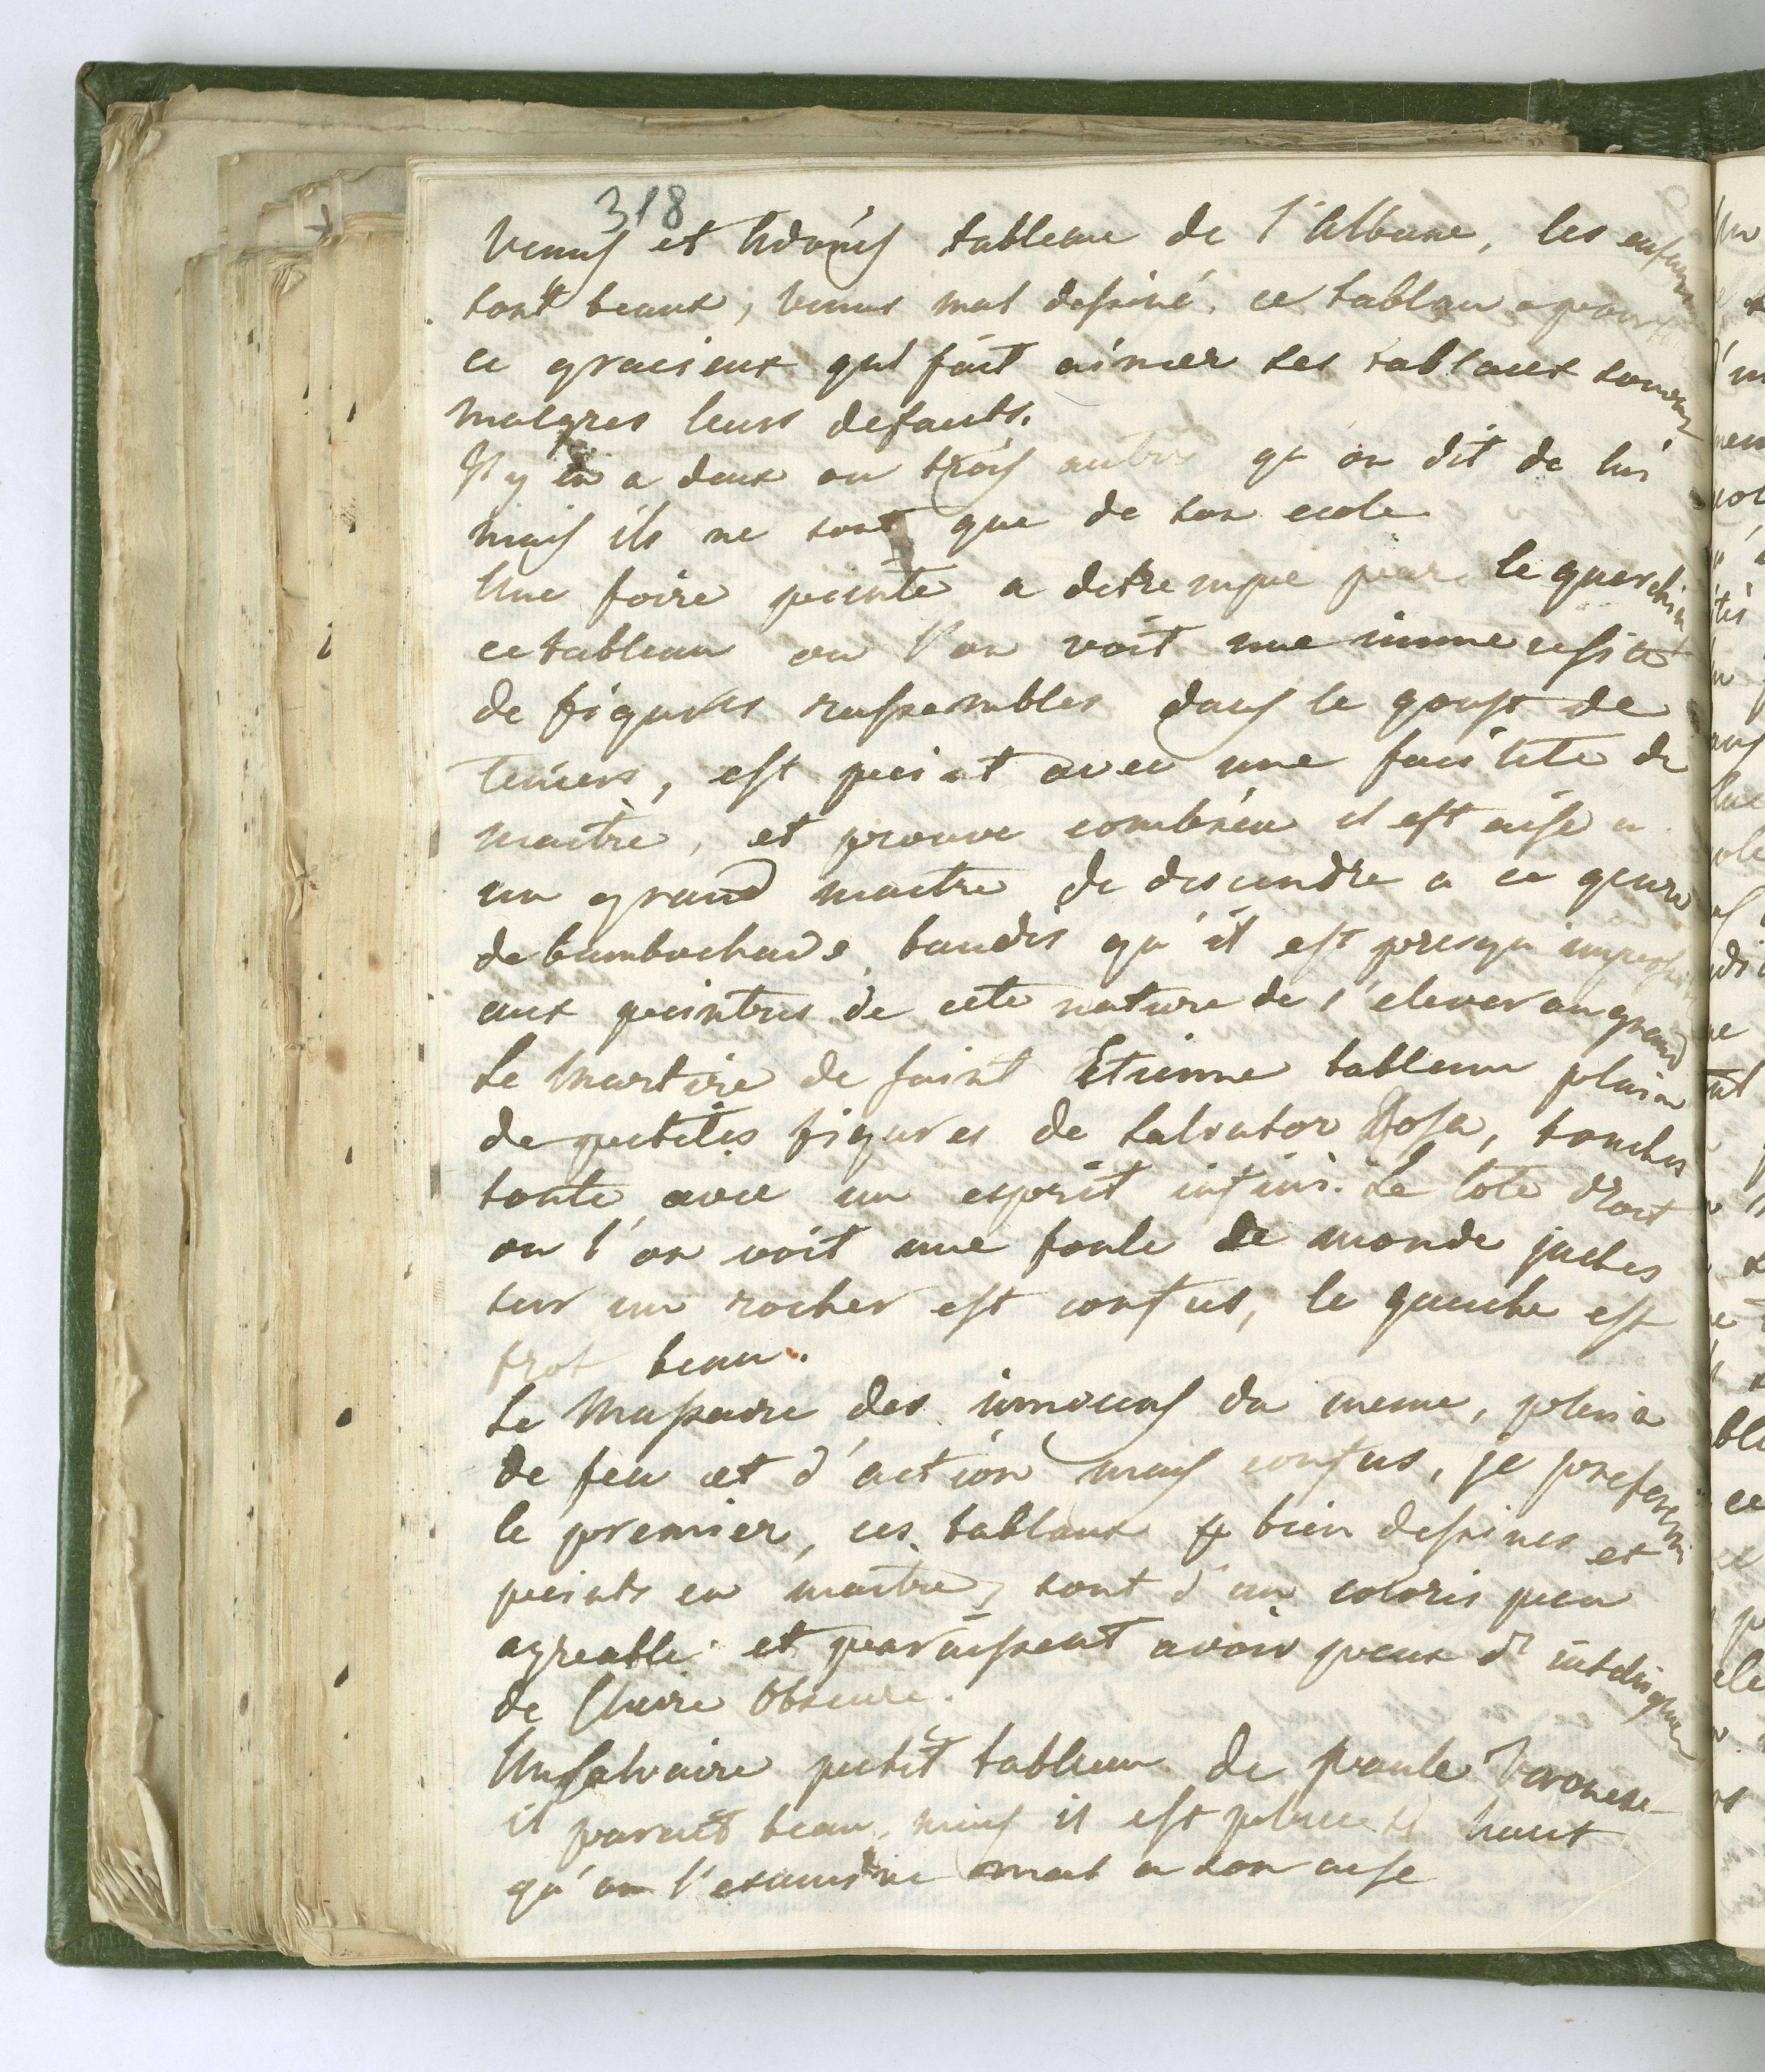 318
Venus et Adonis tableau de l'Albane, les enfans
sont beaux, Venus mal dessiné. ce tableau a pourt
ce gracieux qui fait aimer ses tableaux souvent
malgres leurs defauts.
Il y en a deux ou trois autres qu'on dit de lui
mais ils ne sont que de son ecole
Une foire peinte a detrempe par le guerchin
ce tableau ou l'on voit une immensité
de figures rassembles dans le goust de
Teniers, est peint avec une facilite de
maitre, et prouve combien il est aise a
un grand maitre de descendre a ce genre
de bambochade, tandis qu'il est presqu impossible
aux peintres de cete nature de s'elever au grand
Le Martire de saint Etienne tableau plain
de petites figures de Salvator Rosa, touches
toute avec un esprit infini. Le coté droit
ou l'on voit une foule de monde juches
sur un rocher est confus, le gauche est
trot beau.
Le Massacre des innocens du meme, plein
de feu et d'action mais confus, je prefere
le premier, ces tableaux bien dessines et
peints en maitre, sont d'un coloris peu
agreable et paraissent avoir peux d'intelligence
de Claire Obscure.
Un Calvaire petit tableau de Paule Veronese
il parait beau, mais il est place si haut
qu'on l'examine mal a son aise